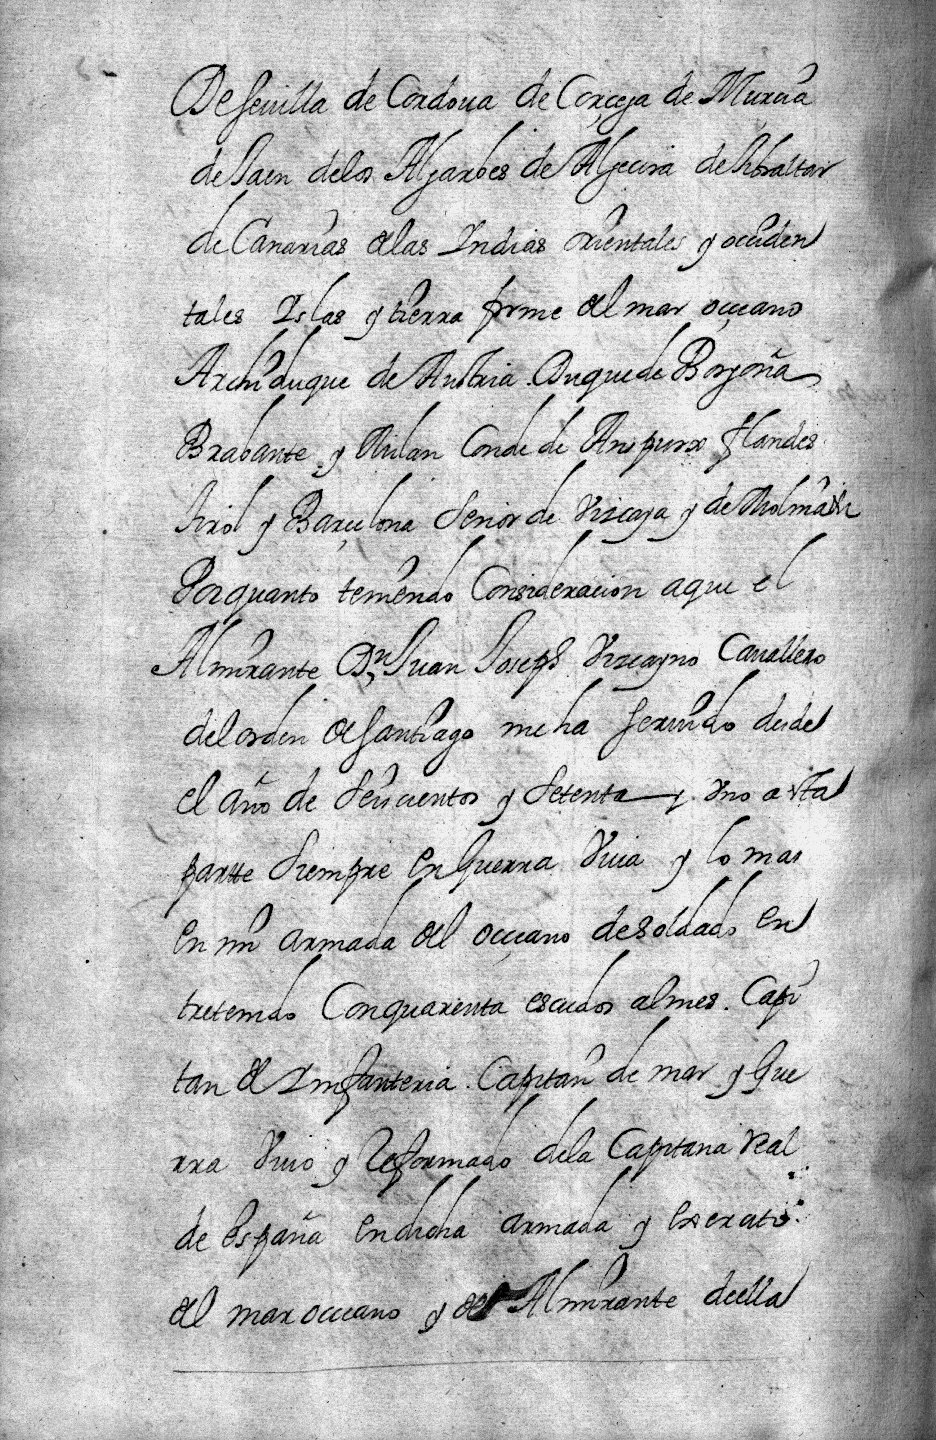 De Seuilla de Cordoua de Corçega de Murcia
de Jaen delos Algarbes de Algecira de Gibraltar
de Canarias delas Indias orientales y occiden
tales Islas y tierra firme del mar occeano
Archiduque de Austria. Duque de Borgoña
Brabante y Milan Conde de Anspurx flandes
tirol y Barçelona Señor de Vizcaya y de Molina &c
Porquanto teniendo Consideracion aque el
Almirante Dn Juan Joseph Vizcayno Cauallero
del orden de Santiago me ha seruido desde
el año de seiscientos y setenta y Vno a esta
partte siempre en Guerra Viua y lo mas
en mi armada del occeano de soldado en
tretenido Conquarenta escudos almes. Capi
tan de Infanteria. Capitan de mar y Gue
rra Viuo y Reformado dela Capitana Real
de españa endicha armada y exercito
del mar occeano y de Almirante deella